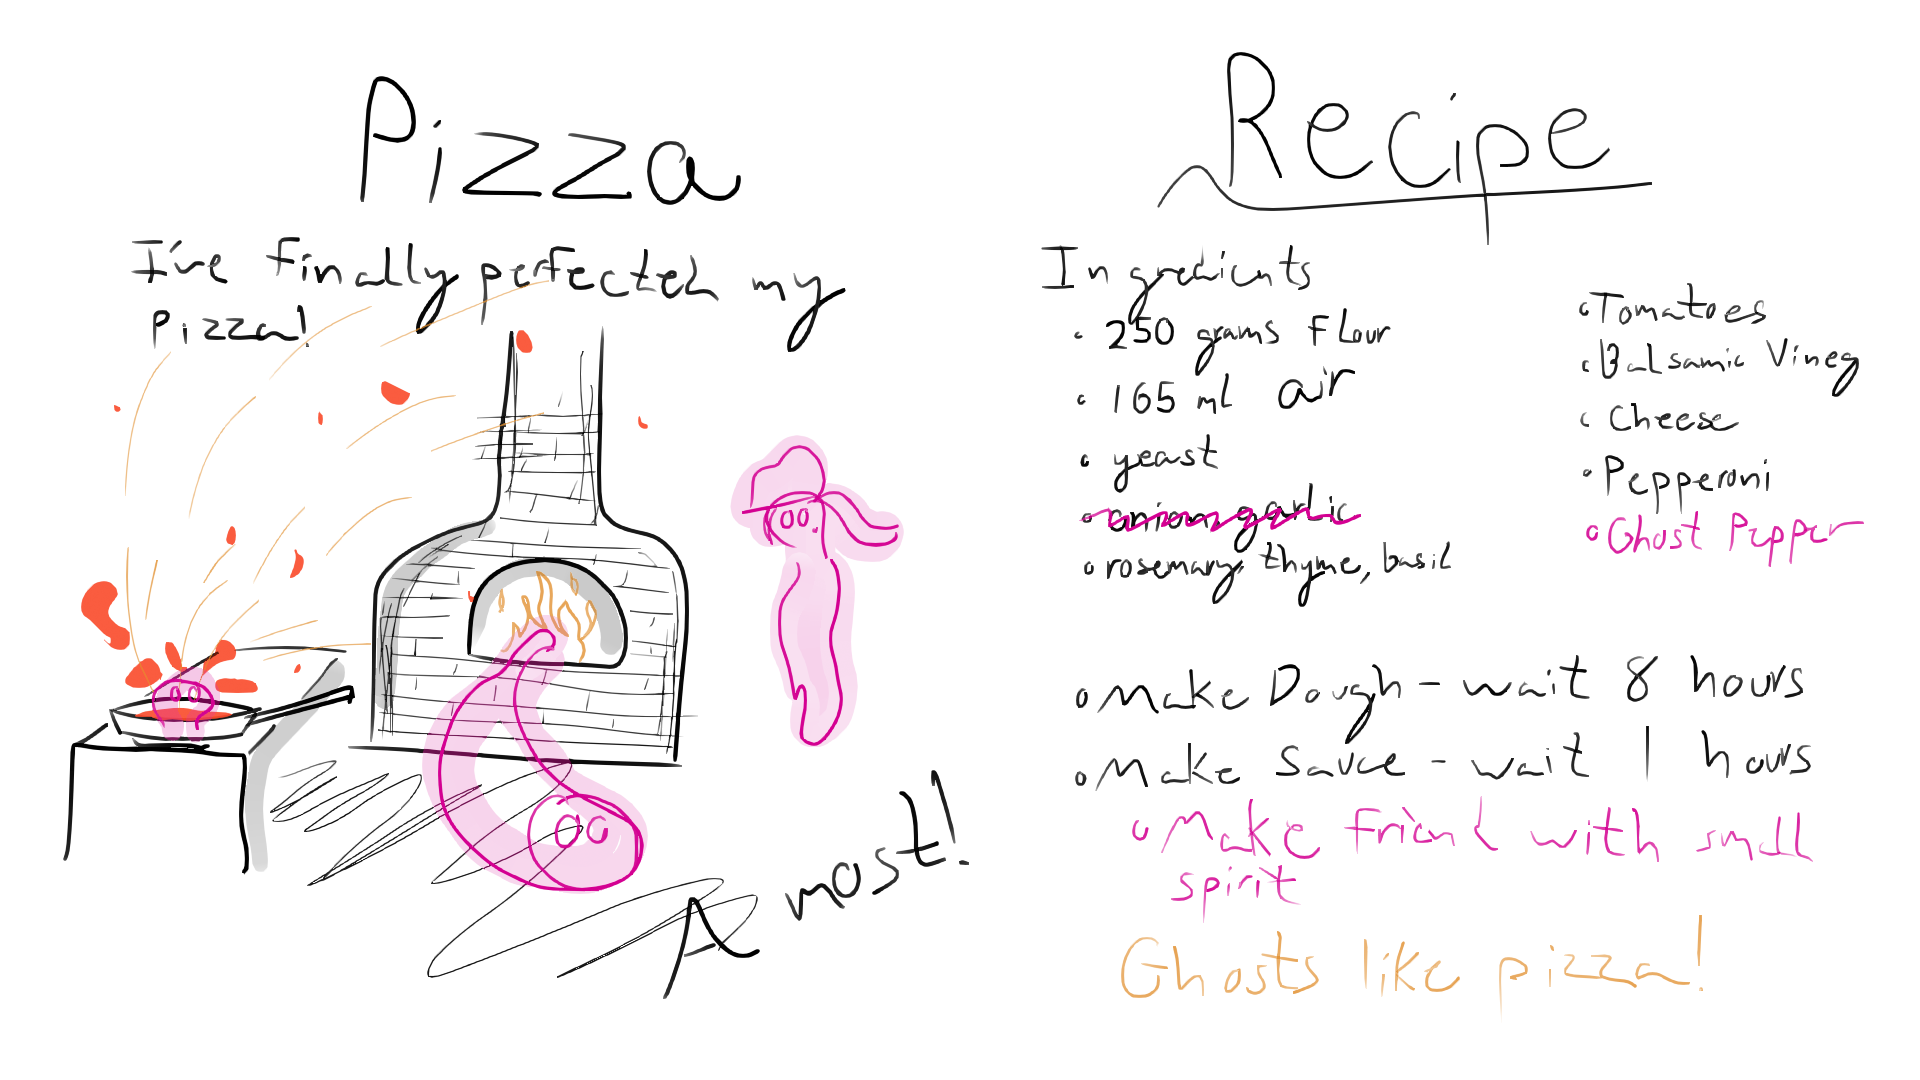 Pizza
I've finally perfected my
Pizza!
A most!
Recipe
Ingredients
250 grams Flour
165 ml air
yeast
onion garlic
rosemary, thyme, basil
Tomatoes
Balsamic Vineg
Cheese
Pepperoni
Ghost Pepper
Make Dough - wait 8 hours
Make Sauce - wait 1 hours
Make friend with small
spirit
Ghosts like pizza!